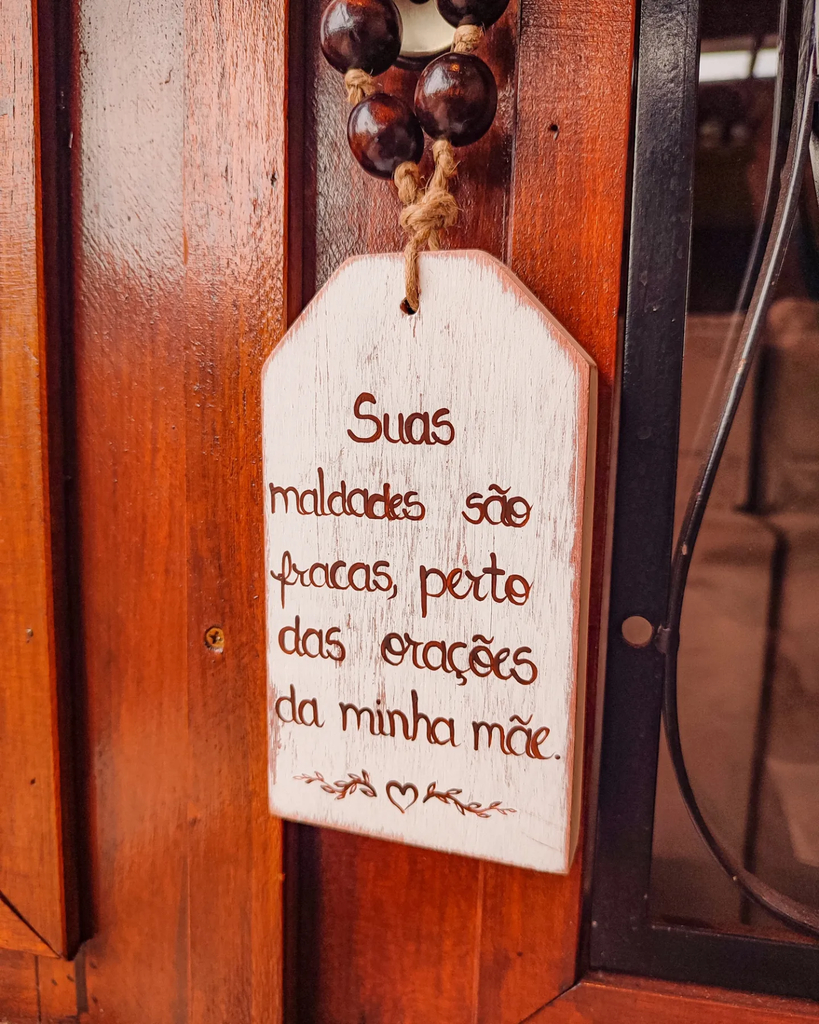 Suas
maldades são
fracas, perto
das orações
da minha mãe.